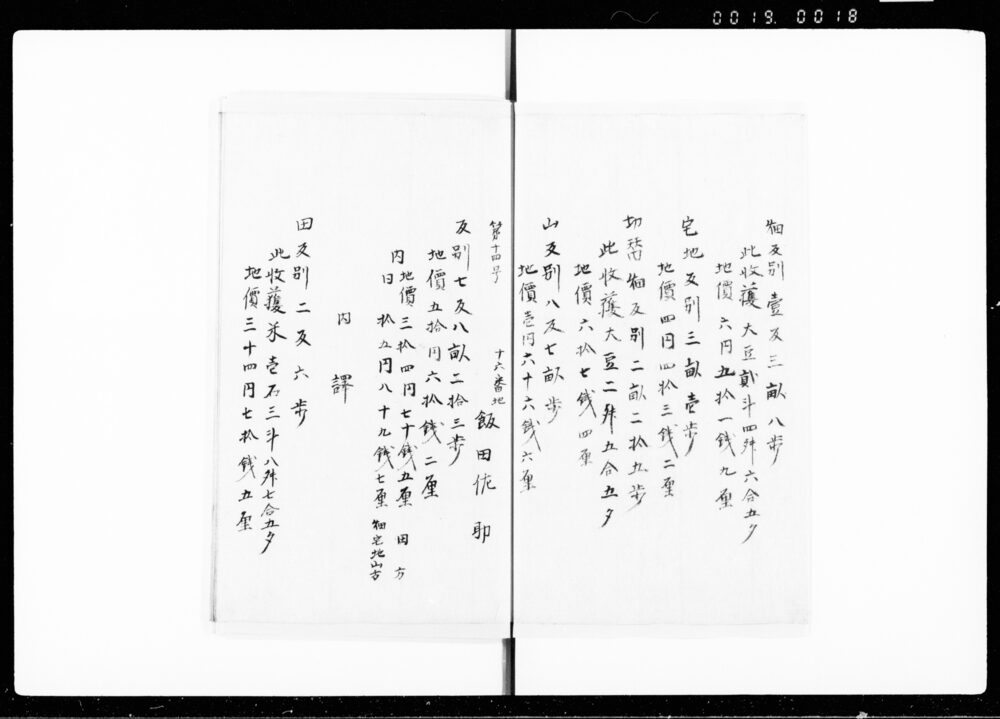 0019. 0018
畑反別壹反三畝八歩
此收護大豆貮斗四舛六合五夕
地價六円五拾一銭九厘
宅地反別三畝壱歩
地價四円四拾三銭二厘
切替畑反別二畝二拾五歩
此收護大豆二舛五合五夕
地價六拾七銭四厘
山反別八反七畝歩
地價壱円六十六銭六厘
第十四号 十六番地
飯田佐助
反別七反八畝二拾三歩
地價五拾円六拾銭二厘
内地價三拾四円七十銭五厘 田方
内日拾五円八十九銭七厘 畑宅地山方
内譯
田反別二反六歩
此收護米壱石三斗八舛七合五夕
地價三十四円七拾銭五厘